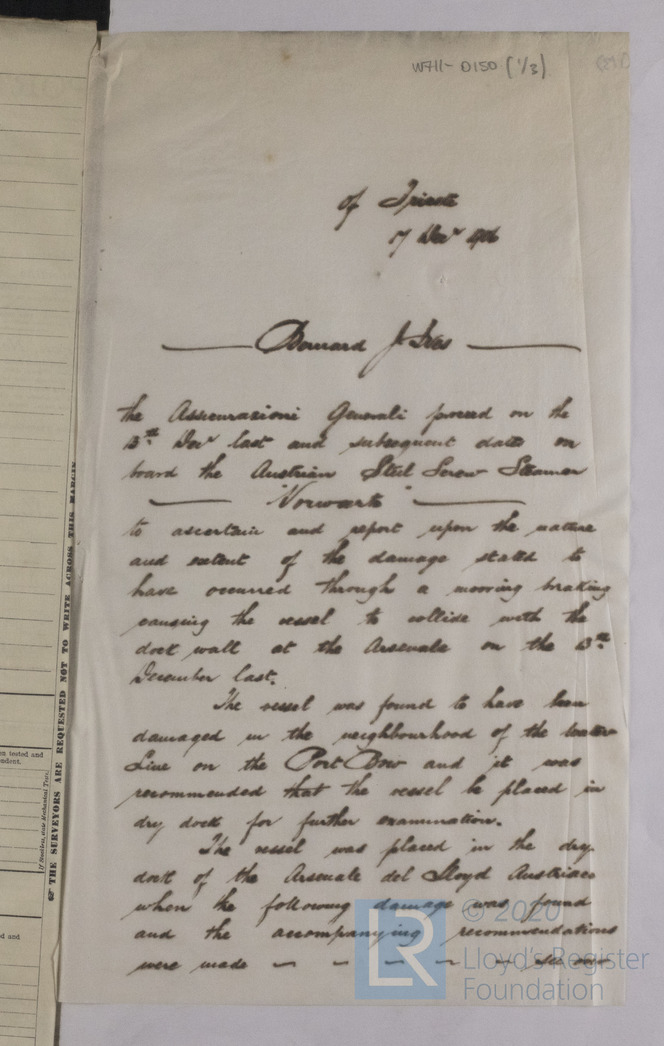 W711-D150 (1/3)
of Trieste
17 Decr 906
Bernard J. Ives
the Assicurazioni Generali proceed on the
13th Decr last and subsequent dates on
board the Austrian Steel Screw Steamer
"Vorwarts"
to ascertain and report upon the nature
and extent of the damage stated to
have occurred through a mooring breaking
causing the vessel to collide with the
dock wall at the Arsenale on the 13th
December last.
The vessel was found to have been
damaged in the neighbourhood of the Water
Line on the Port Bow and it was
recommended that the vessel be placed in
dry dock for further examination.
The vessel was placed in the dry
dock of the Arsenale del Lloyd Austriaco
when the following damage was found
and the accompanying recommendations
were made - - - - -
THE SURVEYORS ARE REQUESTED NOT TO WRITE ACROSS THIS MARGIN
en tested and
pendent.
d and
© 2020
Lloyd's Register
Foundation
LR